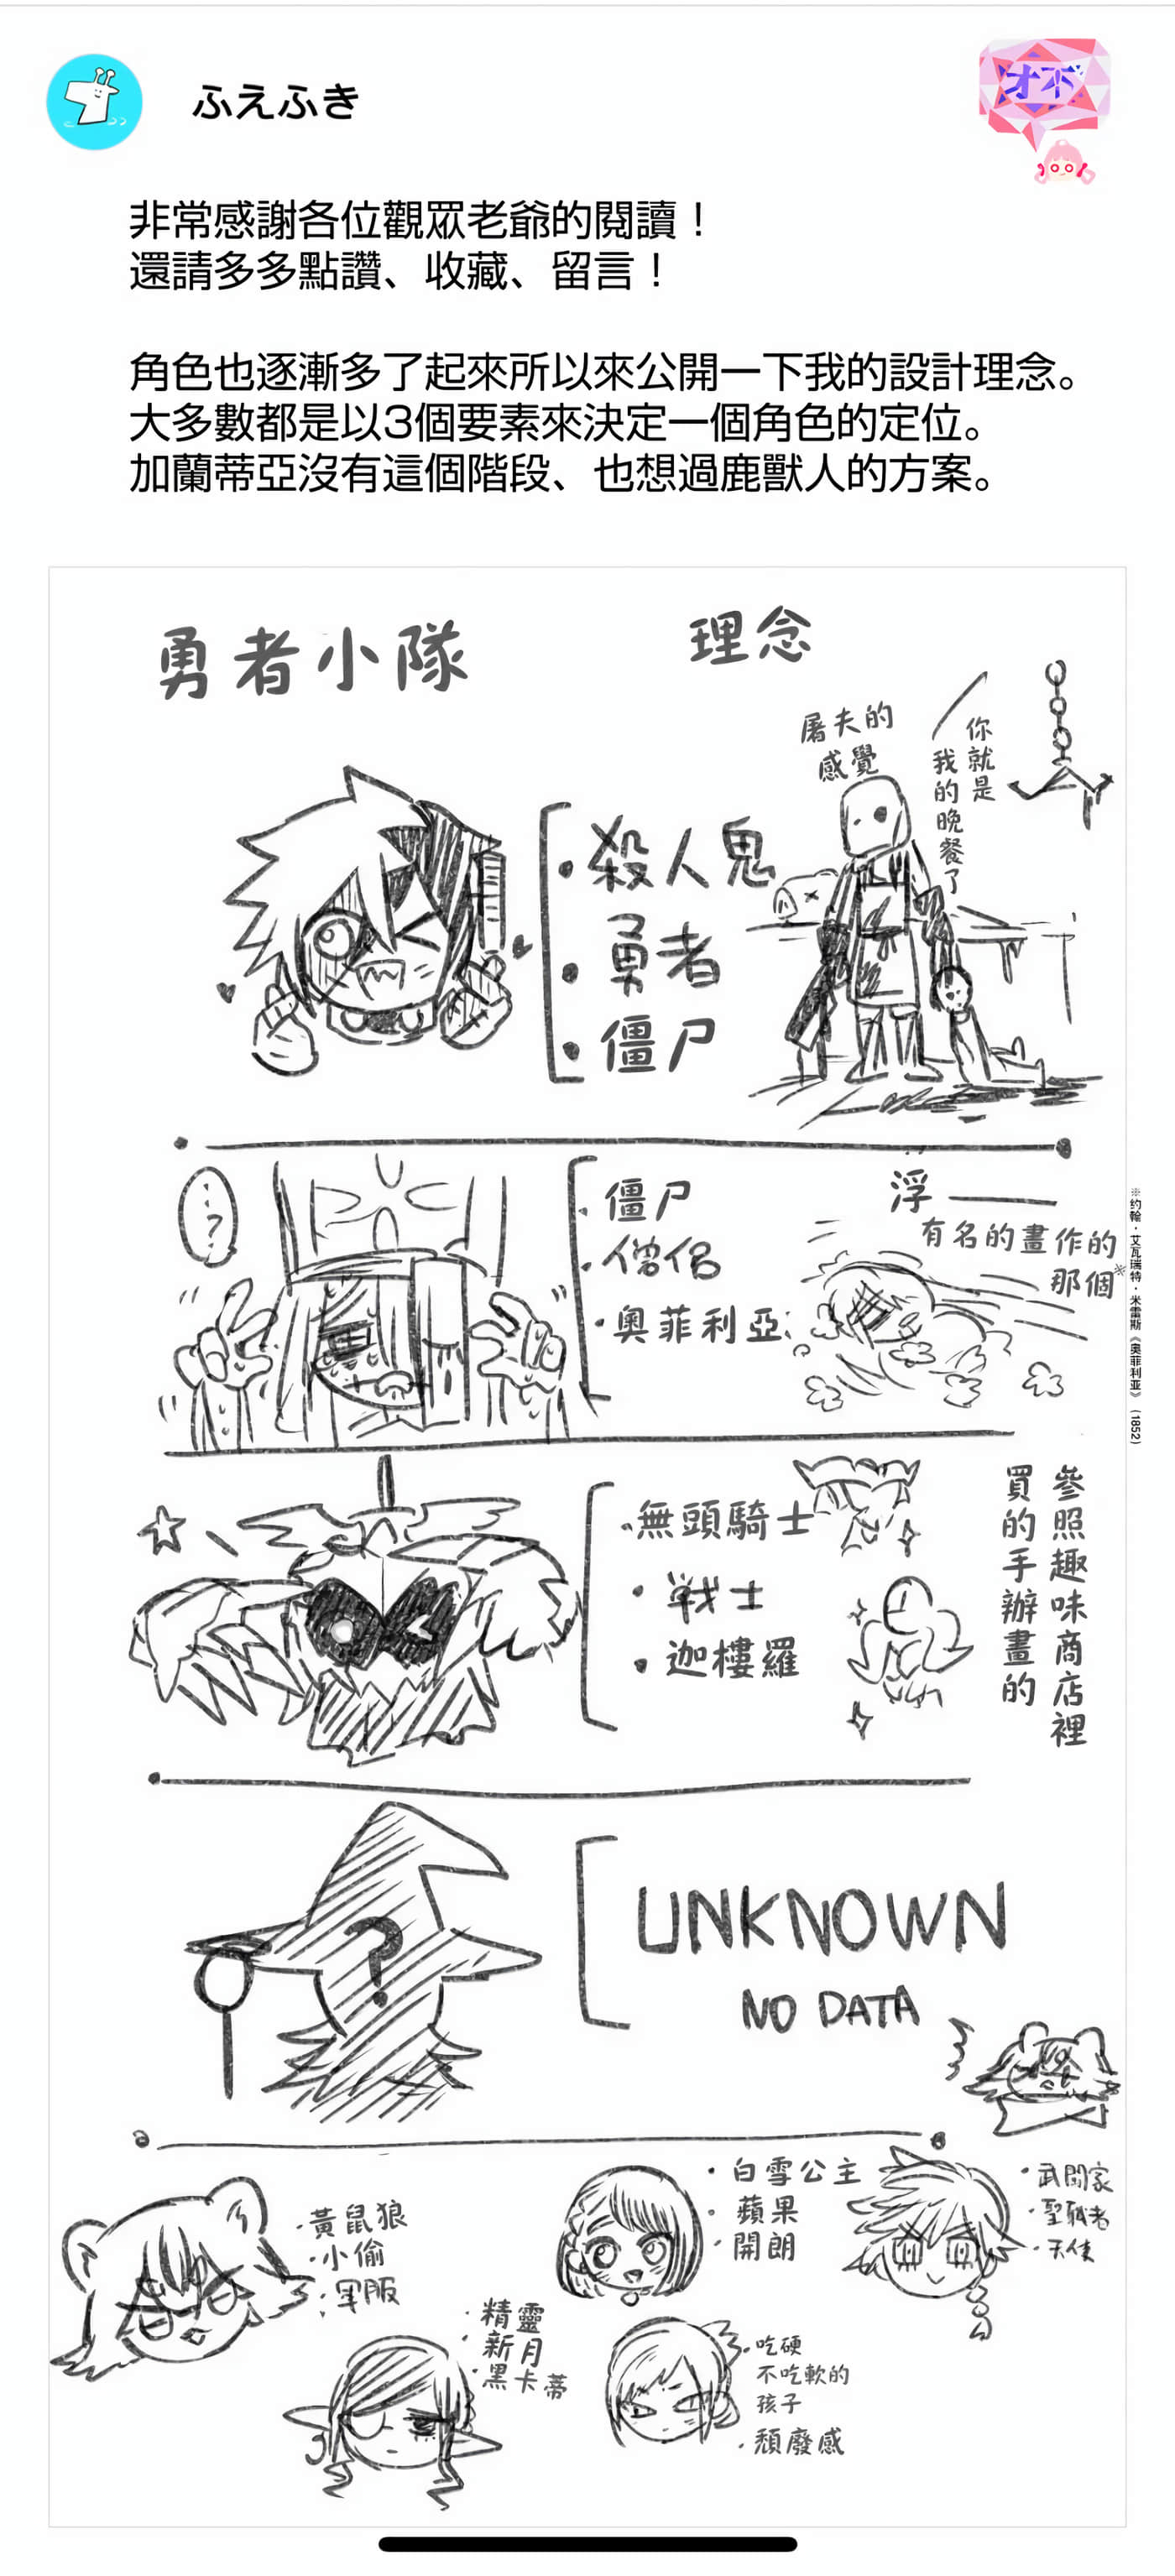 ふえふき
才不
非常感謝各位觀眾老爺的閱讀！
還請多多點讚、收藏、留言！
角色也逐漸多了起來所以來公開一下我的設計理念。
大多數都是以3個要素來決定一個角色的定位。
加蘭蒂亞沒有這個階段、也想過鹿獸人的方案。
勇者小隊
理念
・殺人鬼
・勇者
・僵尸
屠夫的
感覺
你就是
我的晚餐了
…?
・僵尸
・僧侶
・奧菲利亞
浮——
有名的畫作的
那個※
※约翰・艾瓦瑞特・米雷斯《奥菲利亚》（1852）
・無頭騎士
・戦士
・迦樓羅
參照趣味商店裡
買的手辦畫的
?
UNKNOWN
NO DATA
・黃鼠狼
・小偷
・軍服
・精靈
・新月
・黑卡蒂
・白雪公主
・蘋果
・開朗
・吃硬
不吃軟的
孩子
・頹廢感
・武鬪家
・聖職者
・天使